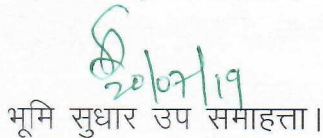 20/07/19
भूमि सुधार उप समाहत्ता।